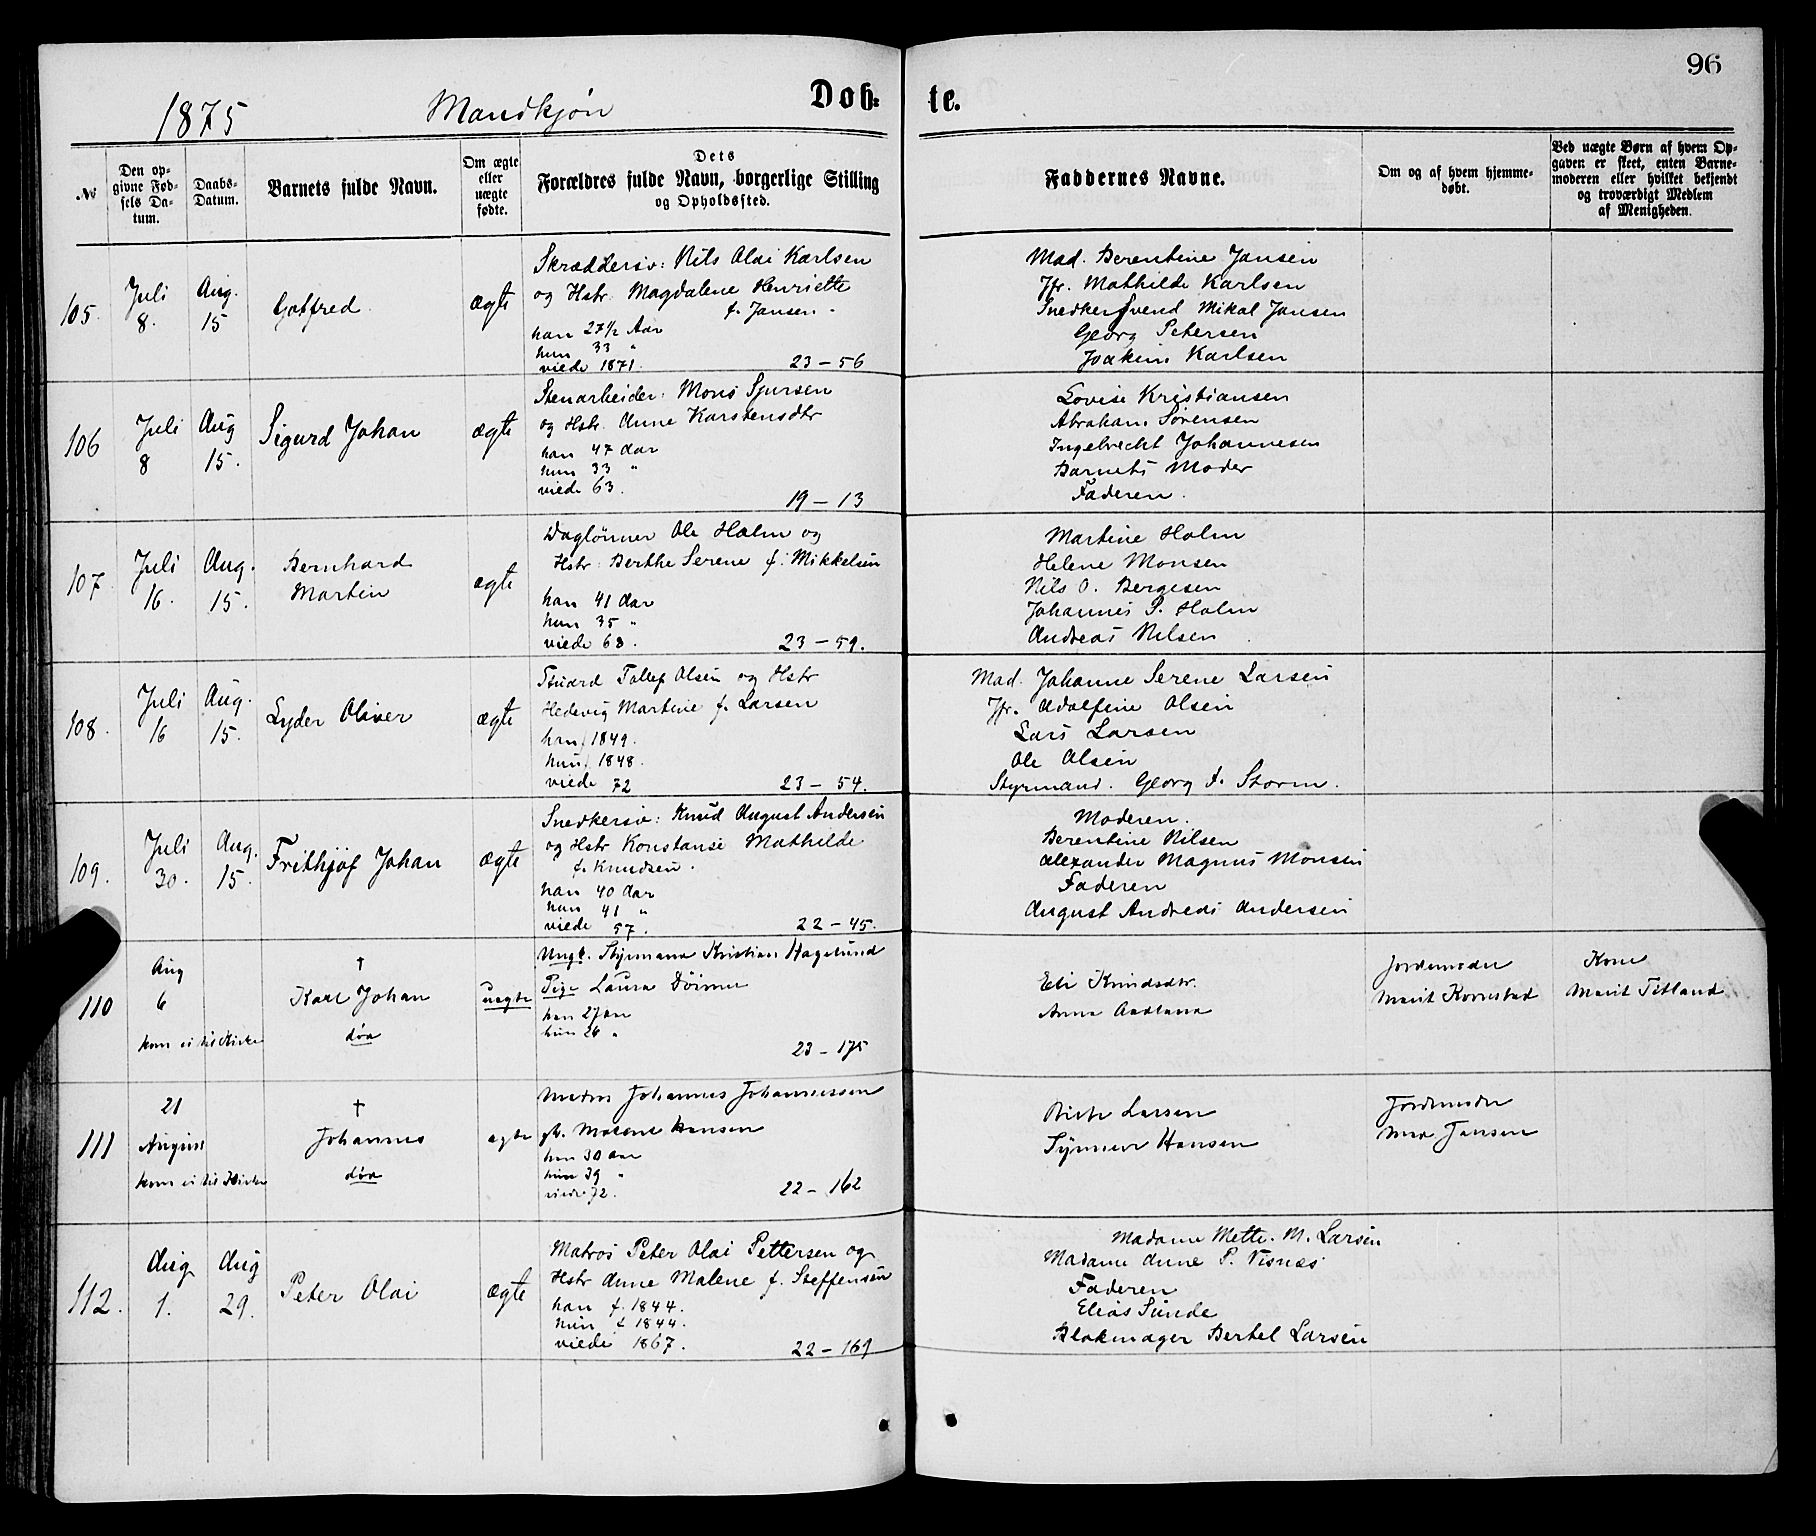 96
1875 Mandkjøn Døb- te.
№
Den opgivne Fødsels Datum.
Daabs-Datum.
Barnets fulde Navn.
Om ægte eller uægte fødte.
Dets Forældres fulde Navn, borgerlige Stilling og Opholdssted.
Faddernes Navne.
Om og af hvem hjemmedøbt.
Ved uægte Børn af hvem Opgaven er skeet, enten Barnemoderen eller hvilket bekjendt og troværdigt Medlem af Menigheden.
105.
Juli 8.
Aug. 15
Gotfred
ægte
Skræddersv: Nils Olai Karlsen
og Hstr. Magdalene Henriette
f. Jansen.
han 27½ Aar
hun 33 "
viede 1871.
23-56
Mad. Berentine Jansen
Jfr. Mathilde Karlsen
Snedkersvend Mikal Jansen
Georg Petersen
Joakim Karlsen
106
Juli 8
Aug 15.
Sigurd Johan
ægte
Stenarbeider: Mons Sjursen
og Hstr. Anne Karstensdtr
han 47 Aar
hun 33 "
viede 63.
19-13
Lovise Kristiansen
Abraham Sørensen
Ingebrecht Johannesen
Barnets Moder
Faderen.
107
Juli 16.
Aug. 15.
Bernhard
Martin
ægte
Daglønner Ole Holm og
Hstr. Berthe Serene f. Mikkelsen
han 41 Aar
hun 35 "
viede 63.
23-59.
Martine Holm
Helene Monsen
Nils O. Bergesen
Johannes P. Holm
Andreas Nilsen
108.
Juli 16
Aug. 15.
Lyder Oliver
ægte
Stuard Tollef Olsen og Hstr
Hedevig Martine f. Larsen
han f 1849.
hun f. 1848.
viede 72
23-54.
Mad. Johanne Serene Larsen
Jfr. Adolfine Olsen
Lars Larsen
Ole Olsen
Styrmand. Georg F. Storm.
109.
Juli 30.
Aug. 15.
Frithjof Johan
ægte
Snedkersv: Knud August Andersen
og Hstr Konstanse Mathilde
f. Knudsen.
han 40 Aar
hun 41 "
viede 57.
22-45.
Moderen.
Berentine Nilsen
Alexander Magnus Monsen
Faderen
August Andreas Andersen
110
Aug
6
kom ei til Kirke
†
Karl Johan
død
uægte
Ungk. Styrmand Kristian Hagelund
Pige Laura
han 27 Aar
hun 26 "
23-175
Eli Knudsdtr.
Anna Aadland
Jordemoder
Marit Kornstad
Kone
Marit Titland
111
21
August
kom ei til Kirke
†
Johannes
død
ægte
Matros Johannes Johannessen
Hansen
han 30 Aar
hun 39 "
viede 72.
22-162
Birte Larsen
Synneve Hansen
Jordemoder
Jansen
112.
Aug 1.
Aug 29.
Peter Olai
ægte
Matros Peter Olai Pettersen og
Hstr Anne Malene f. Steffensen
han f. 1844.
hun f 1844.
viede 1867.
22-169
Madame Mette. M. Larsen
Madame Anne P. Visnæs
Faderen
Elias Sunde
Blokmager Bertel Larsen